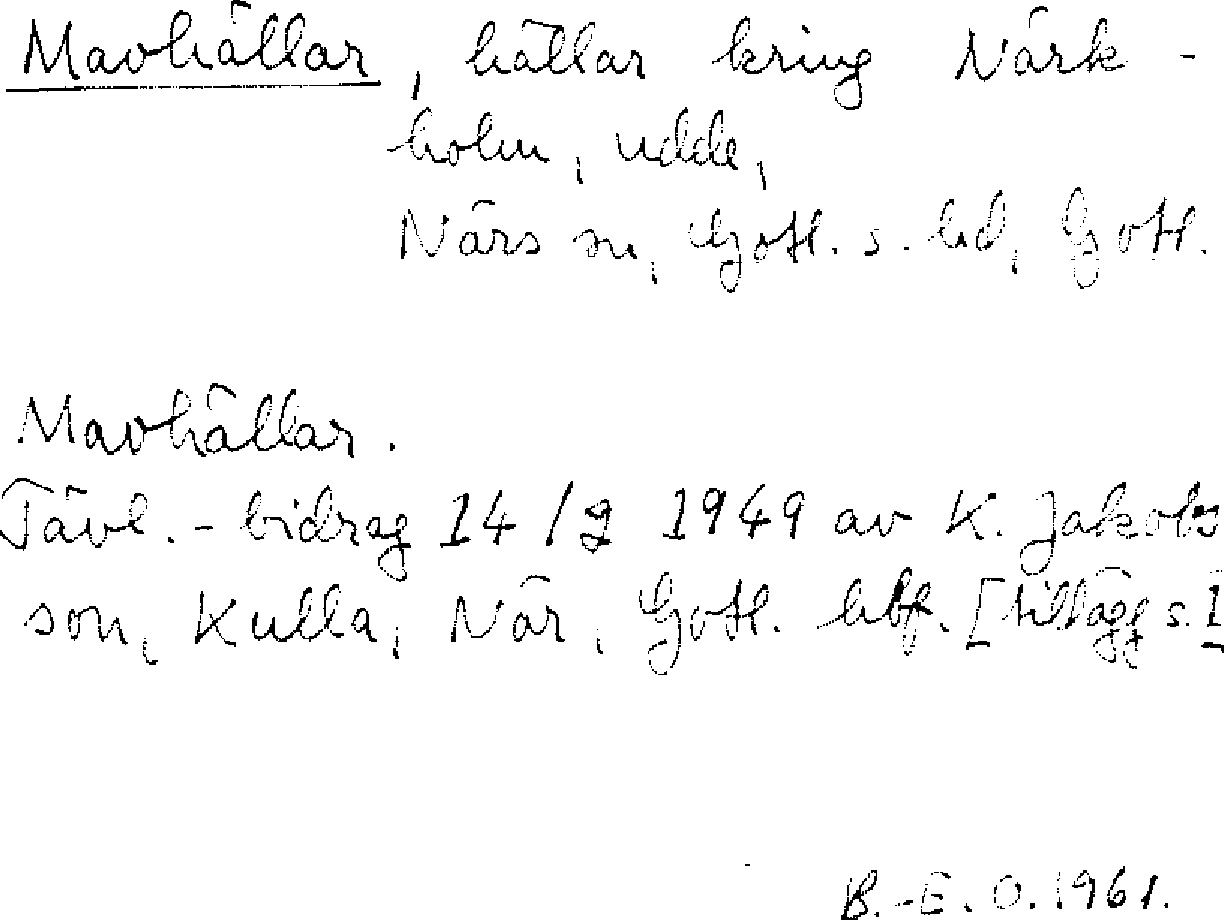 Mavhällar, hällar kring Närk-
holm, udde,
Närs sn, Gotl. s. hd, Gotl.
Mavhällar.
Tävl.-bidrag 14/2 1949 av K. Jakobs
son, Kulla, När, Gotl. hbf. [tillägg s. 1]
B.-E. O. 1961.